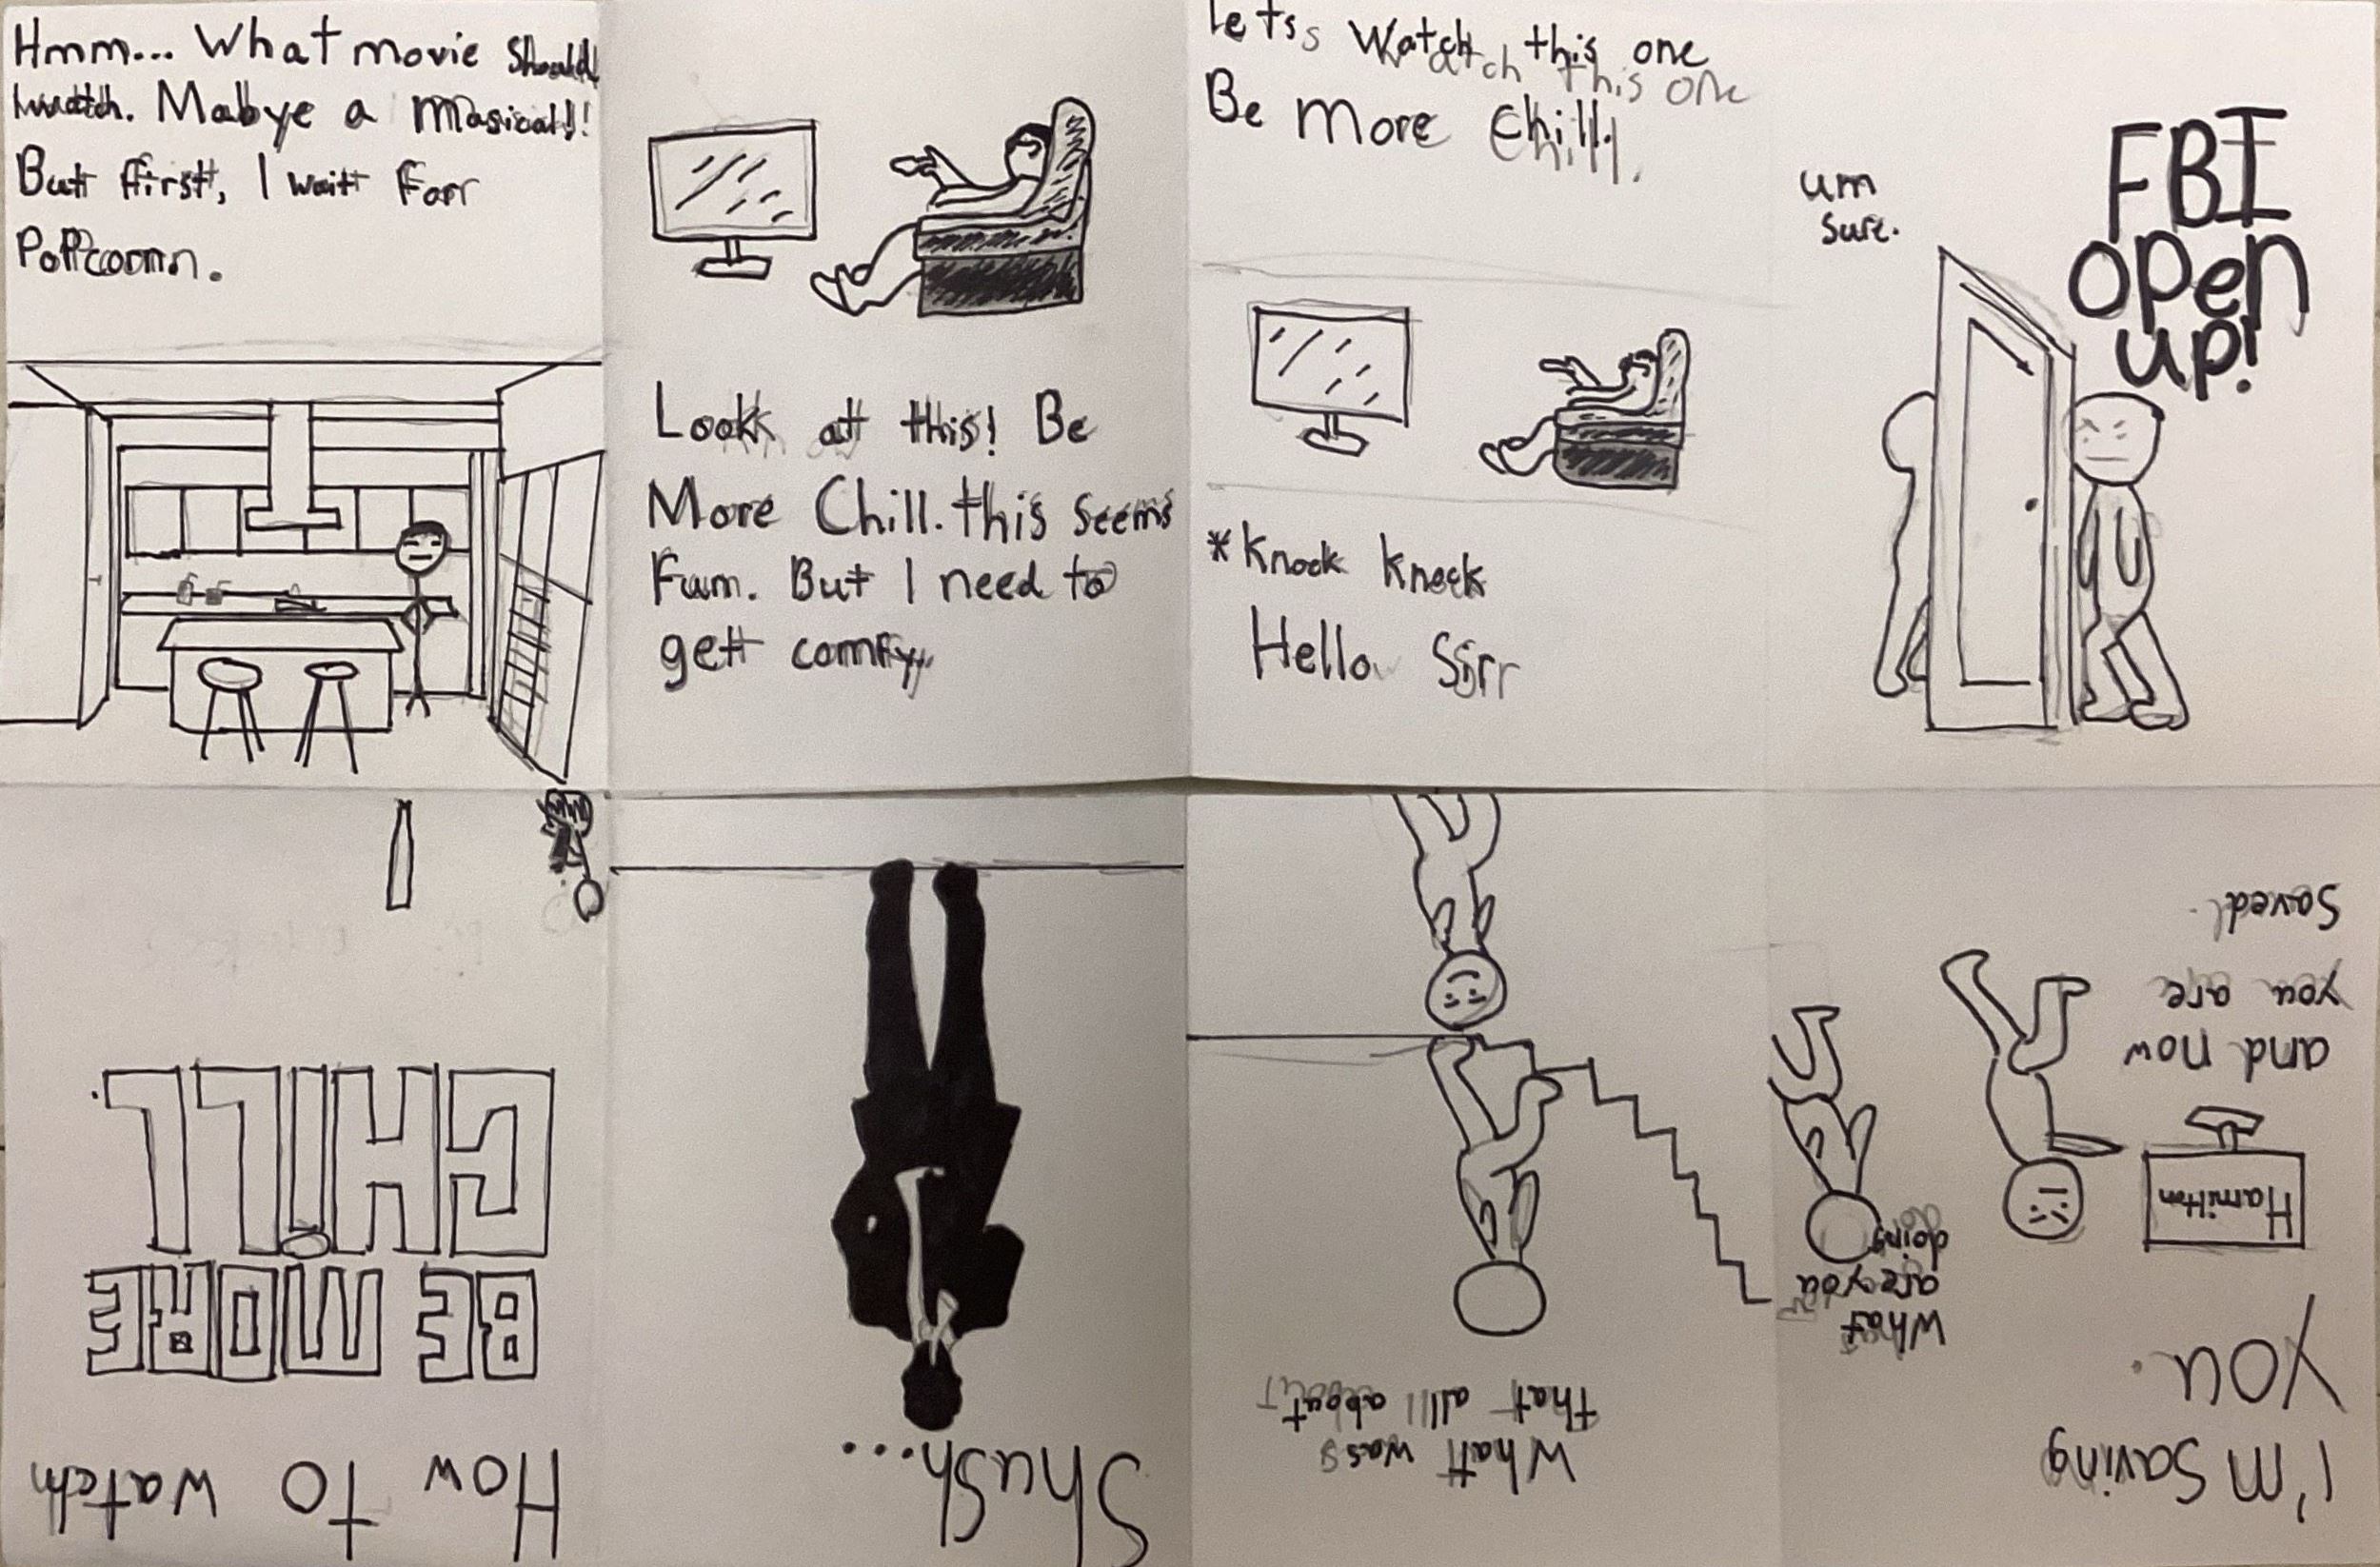 How to watch
BE MORE
CHILL
Hmm... What movie should
I watch. Mabye a Masical!!
But first, I wait For
PoPcorn.
Look at this! Be
More Chill. this seems
Fum. But I need to
get comfy
Lets watch this one
Be More Chill.
*Knock knock
Hello Sirr
um
sure.
FBI
open
up!
I'm saving
you.
what
are you
doing
Hamilton
and now
you are
saved.
What was
that all about
Shush...